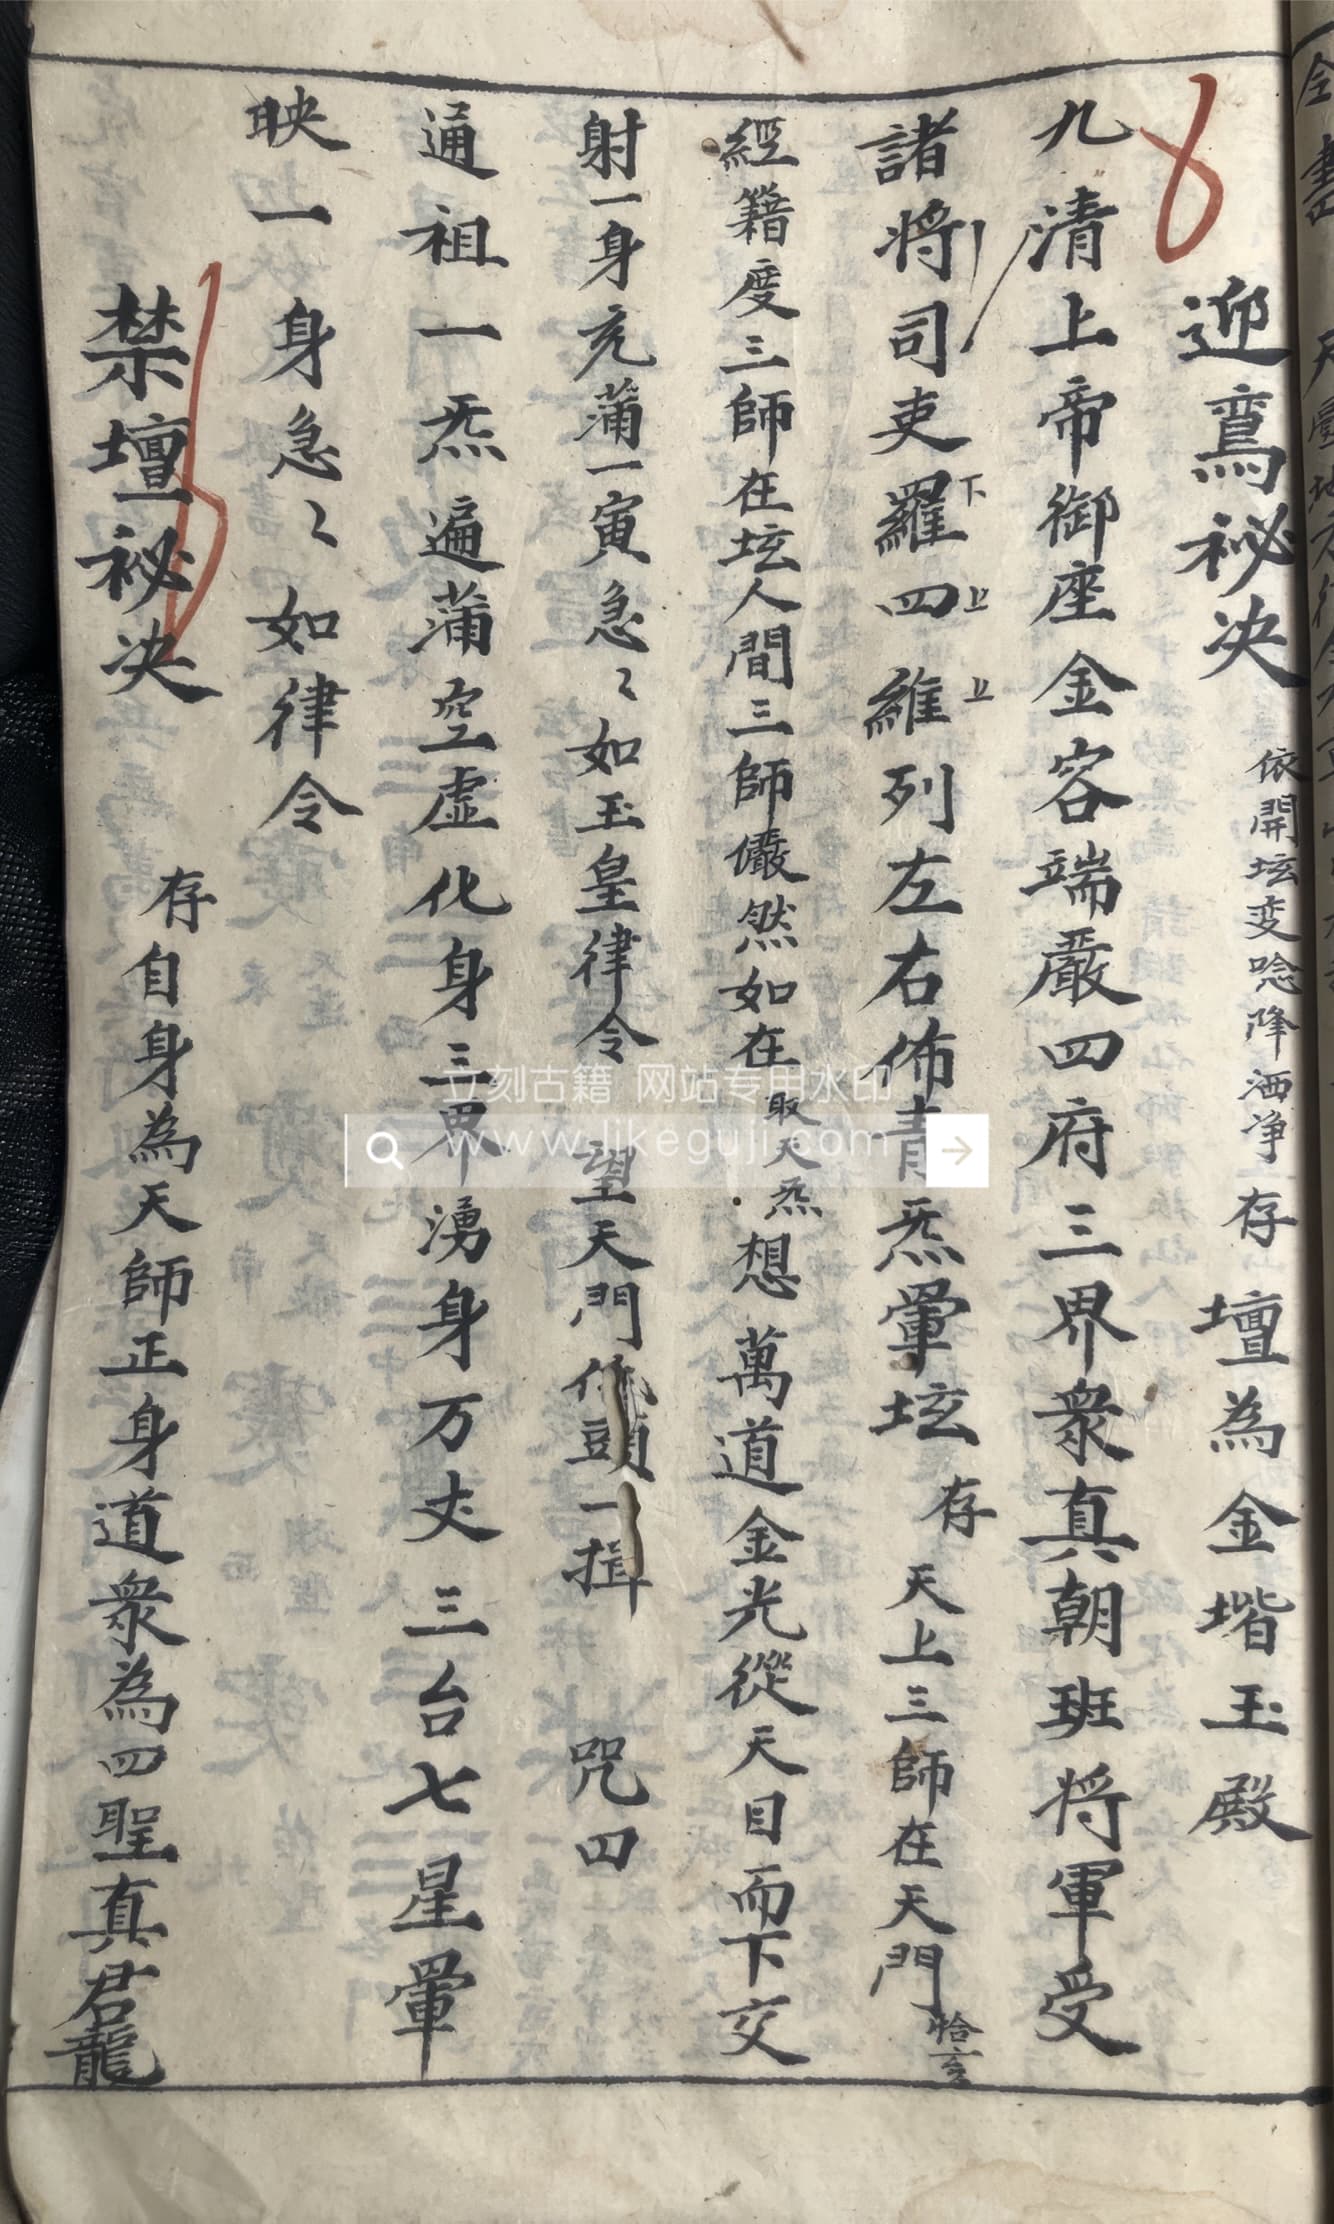 迎鸞秘决 依開坛变唸降洒净 存 壇為金堦玉殿
九清上帝御座金容端嚴四府三界衆真朝班将軍受
諸将司吏羅四維列左右佈青炁罩坛 存 天上三師在天門
下 上 上
經籍度三師在坛人間三師儼然如在 取天炁 想萬道金光從天目而下交
射一身充蒲一寅急〻如玉皇律令 望天門 頭一揖 咒曰
通祖一炁遍蒲空虚化身三界湧身万丈三台七星罩
映一身急〻如律令
禁壇秘决 存自身為天師正身道衆為四聖真君龍
立刻古籍 网站专用水印
www.likeguji.com